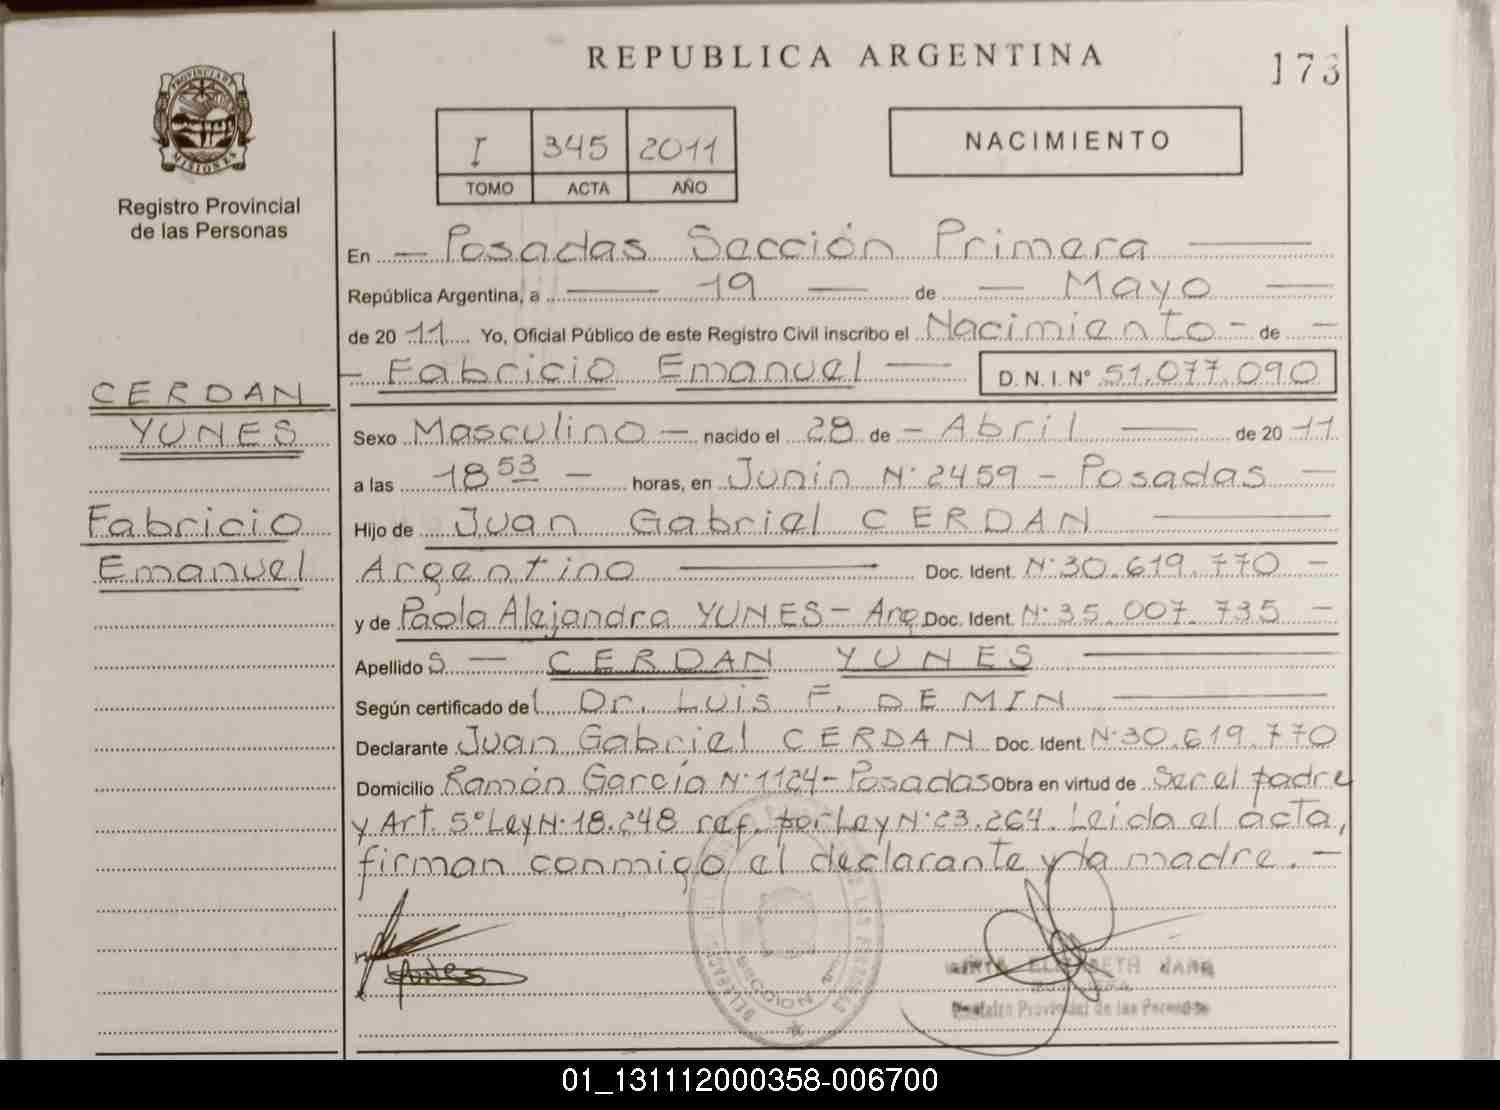 REPUBLICA ARGENTINA
173
PROVINCIA DE
MISIONES
Registro Provincial
de las Personas
I 345 2011
TOMO ACTA AÑO
NACIMIENTO
En — Posadas Sección Primera —
República Argentina, a — 19 — de — Mayo —
de 2011 Yo, Oficial Público de este Registro Civil inscribo el Nacimiento - de —
— Fabricio Emanuel — D. N. I. Nº 51.077.090
CERDAN
YUNES
Fabricio
Emanuel
Sexo Masculino — nacido el 28 de — Abril — de 2011
a las 18 53 — horas, en Junin Nº 2459 - Posadas —
Hijo de Juan Gabriel CERDAN —
Argentino — Doc. Ident. Nº 30.619.770 —
y de Paola Alejandra YUNES - Arg. Doc. Ident. Nº 35.007.735 —
Apellidos — CERDAN YUNES —
Según certificado del Dr. Luis F. DEMIN —
Declarante Juan Gabriel CERDAN Doc. Ident. Nº 30.619.770
Domicilio Ramón García Nº 1124 - Posadas Obra en virtud de Ser el padre
y Art. 5º Ley Nº 18.248 ref. por Ley Nº 23.264. Leida el acta,
firman conmigo el declarante y la madre. —
Yunes
Registro Provincial de las Personas
01_131112000358-006700